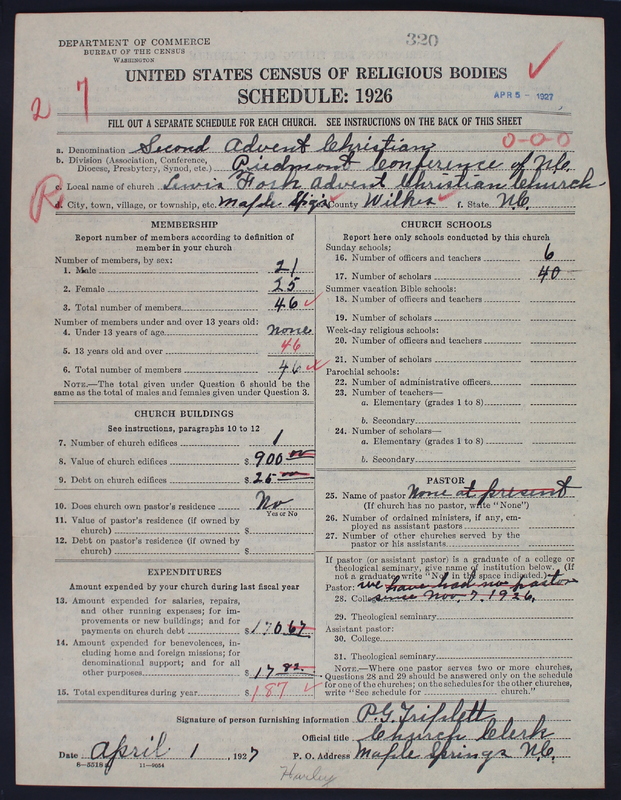 DEPARTMENT OF COMMERCE
BUREAU OF THE CENSUS
WASHINGTON
320
UNITED STATES CENSUS OF RELIGIOUS BODIES
SCHEDULE: 1926
APR 5 - 1927
2 7
FILL OUT A SEPARATE SCHEDULE FOR EACH CHURCH. SEE INSTRUCTIONS ON THE BACK OF THIS SHEET
a. Denomination Second Advent Christian 0-0-0
b. Division (Association, Conference, Diocese, Presbytery, Synod, etc.) Piedmont Conference of N.C.
R
c. Local name of church Lewis Fork Advent Christian Church
d. City, town, village, or township, etc. Maple Spgs County Wilkes f. State N.C.
MEMBERSHIP
Report number of members according to definition of
member in your church
Number of members, by sex:
1. Male 21
2. Female 25
3. Total number of members 46
Number of members under and over 13 years old:
4. Under 13 years of age none
5. 13 years old and over 46
6. Total number of members 46
NOTE.—The total given under Question 6 should be the
same as the total of males and females given under Question 3.
CHURCH BUILDINGS
See instructions, paragraphs 10 to 12
7. Number of church edifices 1
8. Value of church edifices $ 900 00
9. Debt on church edifices $ 25 00
10. Does church own pastor's residence? No
Yes or No
11. Value of pastor's residence (if owned by
church) $
12. Debt on pastor's residence (if owned by
church) $
EXPENDITURES
Amount expended by your church during last fiscal year
13. Amount expended for salaries, repairs,
and other running expenses; for im-
provements or new buildings; and for
payments on church debt $ 170 67
14. Amount expended for benevolences, in-
cluding home and foreign missions; for
denominational support; and for all
other purposes $ 17 82
15. Total expenditures during year $ 187
CHURCH SCHOOLS
Report here only schools conducted by this church
Sunday schools:
16. Number of officers and teachers 6
17. Number of scholars 40
Summer vacation Bible schools:
18. Number of officers and teachers
19. Number of scholars
Week-day religious schools:
20. Number of officers and teachers
21. Number of scholars
Parochial schools:
22. Number of administrative officers
23. Number of teachers—
a. Elementary (grades 1 to 8)
b. Secondary
24. Number of scholars—
a. Elementary (grades 1 to 8)
b. Secondary
PASTOR
25. Name of pastor None at present
(If church has no pastor, write "None")
26. Number of ordained ministers, if any, em-
ployed as assistant pastors
27. Number of other churches served by the
pastor or his assistants
If pastor (or assistant pastor) is a graduate of a college or
theological seminary, give name of institution below. (If
not a graduate write "No" in the space indicated.)
Pastor: we have had no pastor
28. College since Nov. 7, 1926,
29. Theological seminary
Assistant pastor:
30. College
31. Theological seminary
NOTE.—Where one pastor serves two or more churches,
Questions 28 and 29 should be answered only on the schedule
for one of the churches; on the schedules for the other churches,
write "See schedule for church."
Signature of person furnishing information P.G. Triplett
Official title Church Clerk
Date April 1, 1927 P. O. Address Maple Springs N.C.
8-5518 11-9654
Hurley